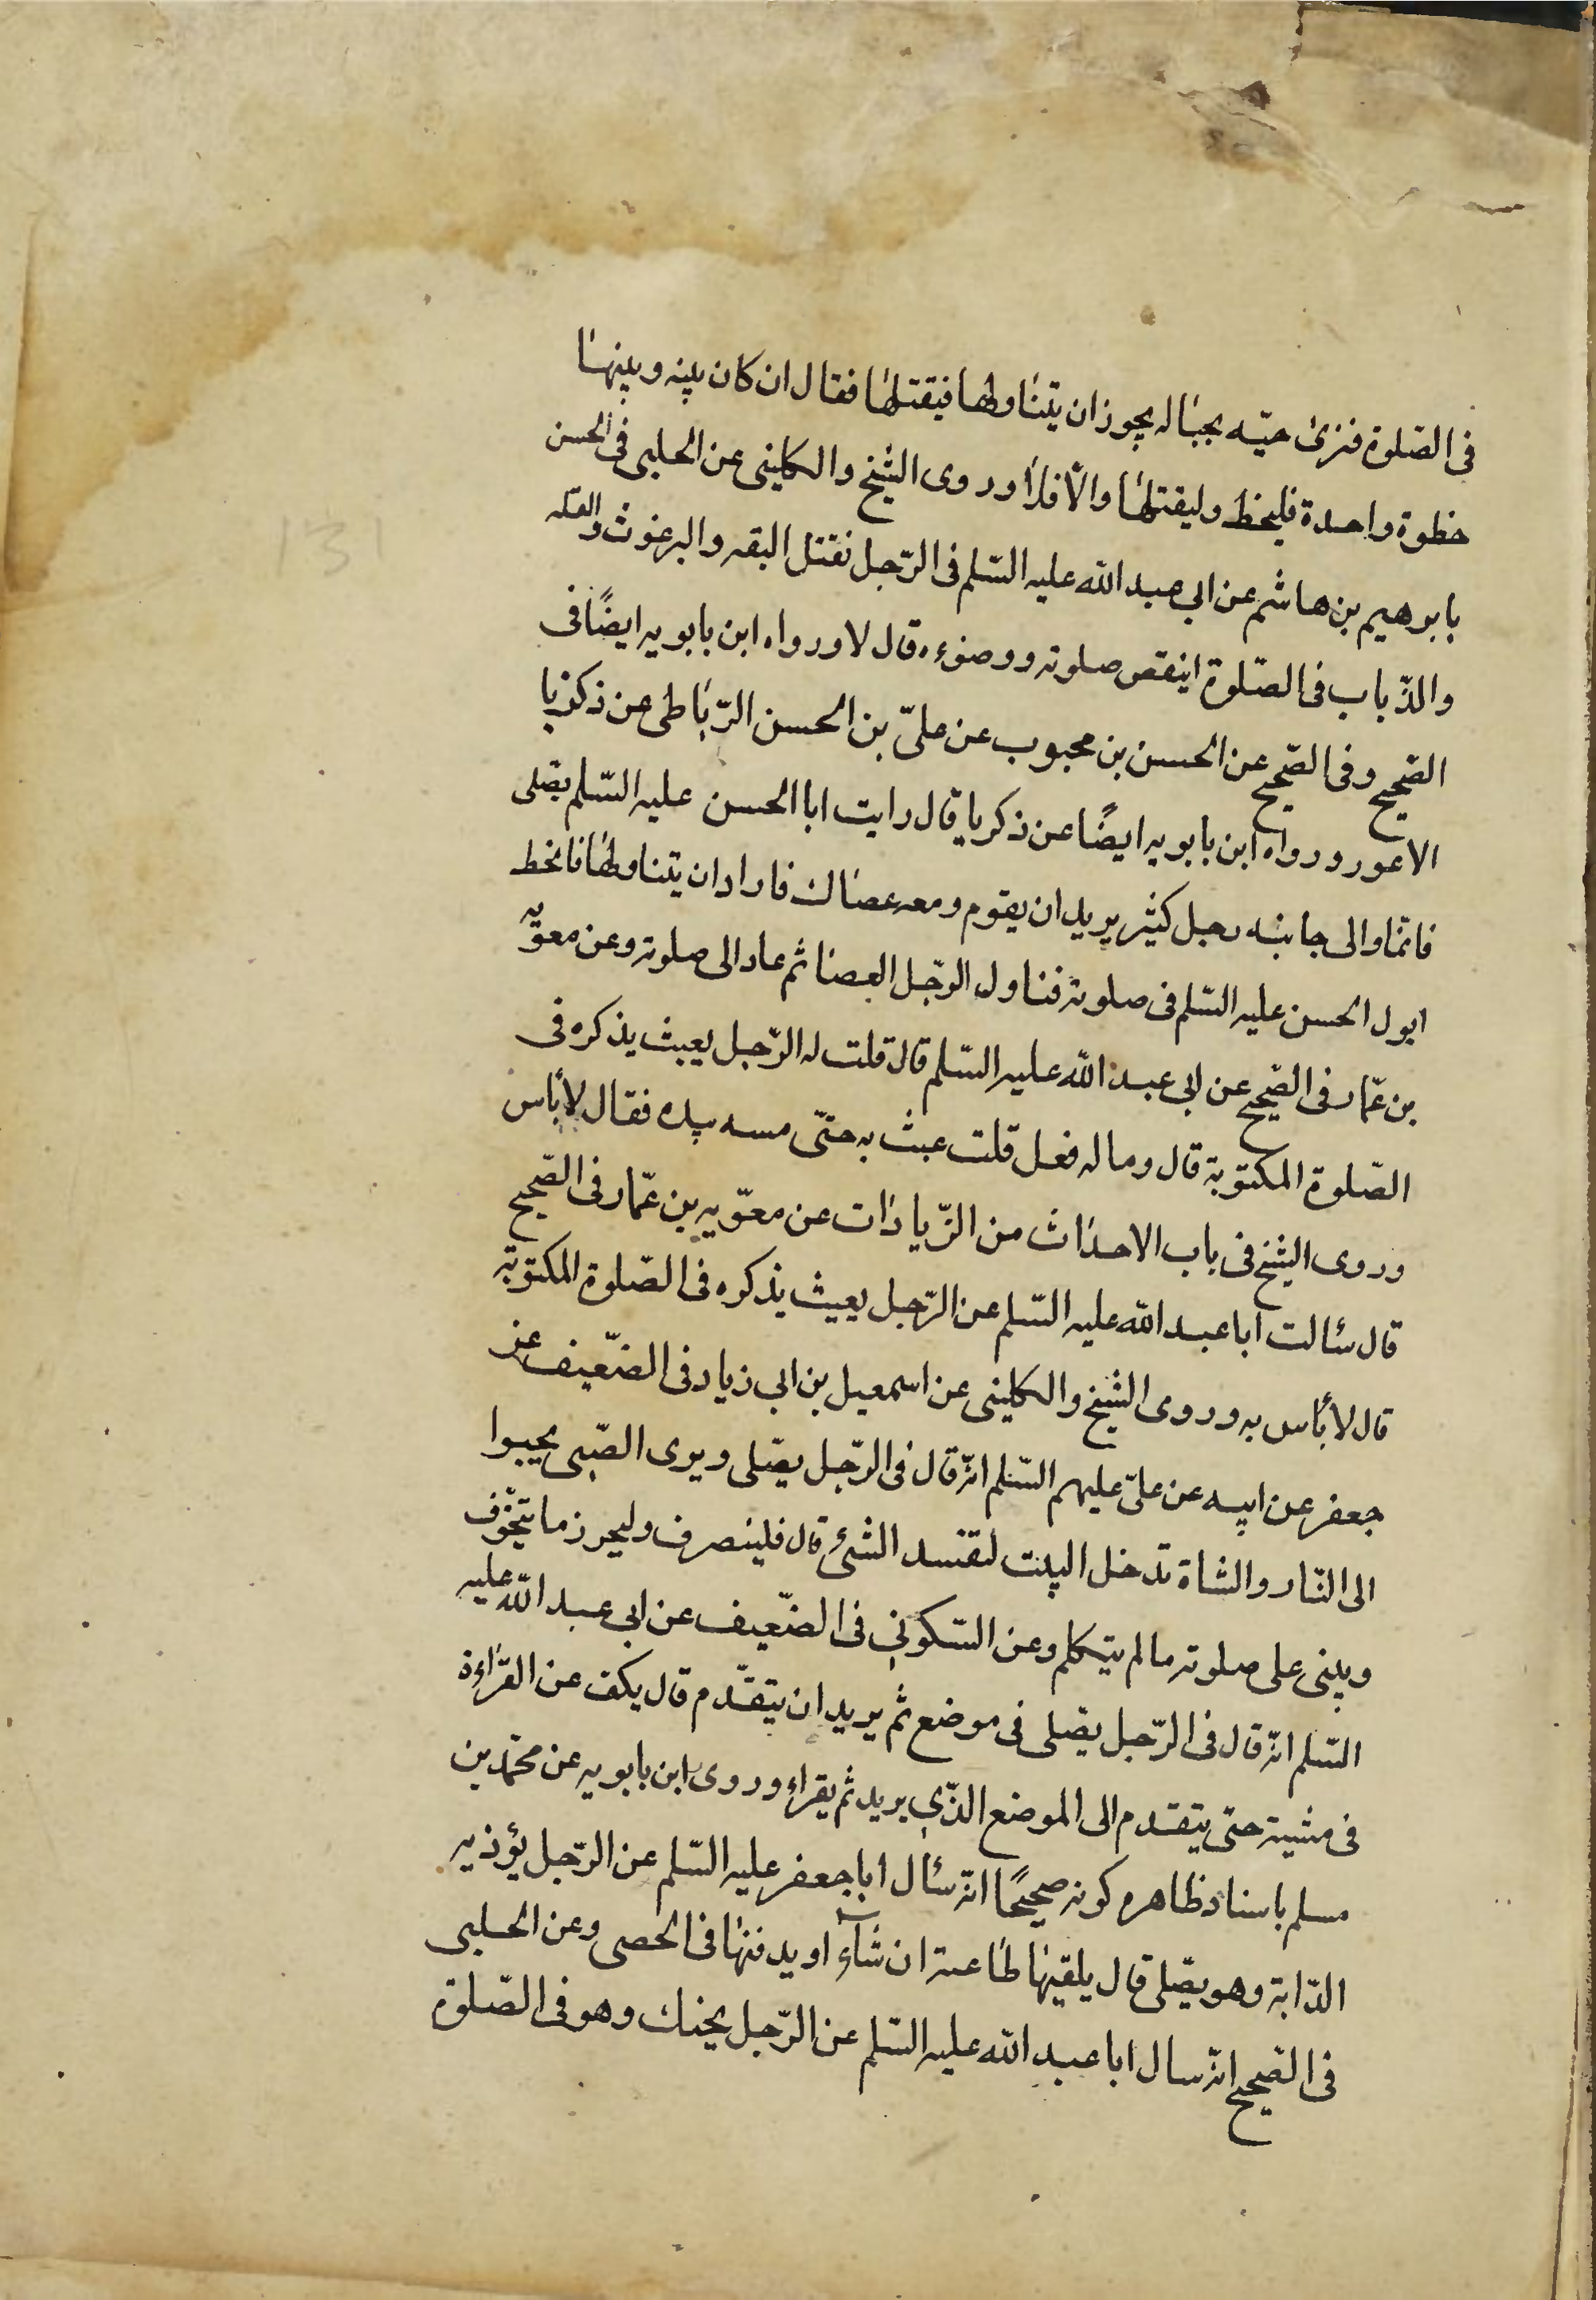 فى الصّلوة فنرى حيّه بجباله يجوز ان يتناولها فيقتلها فقال ان كان بينه وبينها
خطوة واحدة فليخط وليقتلها والّا فلا وروى الشّيخ والكلينى عن الحلبى فى الحسن
بابرهيم بن هاشم عن ابى عبد الله عليه السّلم فى الرّجل نقتل البقه والبرغوث والقمله
والذّباب فى الصّلوة اينقص صلوته ووضوءه قال لا ورواه ابن بابويه ايضًا فى
الصّحيح وفى الصّحيح عن الحسن بن محبوب عن علىّ بن الحسن الرّباطى عن ذكريا
الاعور ورواه ابن بابويه ايضًا عن ذكريا قال رايت ابا الحسن عليه السّلم يصّلى
قائما والى جانبه رجل كبير يريد ان يقوم ومعه عصا له فاراد ان يتناولها فانحط
ابول الحسن عليه السّلم فى صلوته فناول الرّجل العصا ثم عاد الى صلوته وعن معوّيه
بن عمّار فى الصّحيح عن ابى عبد الله عليه السّلم قال قلت له الرّجل يعبث بذكره فى
الصّلوة المكتوبة قال وما له فعل قلت عبث به حتّى مسه بيده فقال لا بأس
وروى الشّيخ فى باب الاحداث من الزّيادات عن معوّيه بن عمّار فى الصّحيح
قال سئالت ابا عبد الله عليه السّلم عن الرّجل يعبث بذكره فى الصّلوة المكتوبة
قال لا بأس به وروى الشّيخ والكلينى عن اسمعيل بن ابى زياد فى الضّعيف عن
جعفر عن ابيه عن علىّ عليهم السّلم انّه قال فى الرّجل يصّلى ويرى الصّبى يحبوا
الى النّار والشاة تدخل البيت لتفسد الشئ قال فلينصرف وليحرز ما يتخوّف
ويبنى على صلوته ما لم يتكلم وعن السّكونى فى الضّعيف عن ابى عبد الله عليه
السّلم انّه قال فى الرّجل يصّلى فى موضع ثم يريد ان يتقدّم قال يكف عن القراءة
فى مشيته حتى يتقدم الى الموضع الذّى يريد ثم يقراء وروى ابن بابويه عن محمّد بن
مسلم باسناد ظاهره كونه صحيحًا انّه سئال ابا جعفر عليه السّلم عن الرّجل يؤذيه
الدّابة وهو يصّلى قال يلقيها طاعته ان شآء او يدفنها فى الحصى وعن الحلبى
فى الصّحيح انّه سال ابا عبد الله عليه السّلم عن الرّجل يحتك وهو فى الصّلوة
131